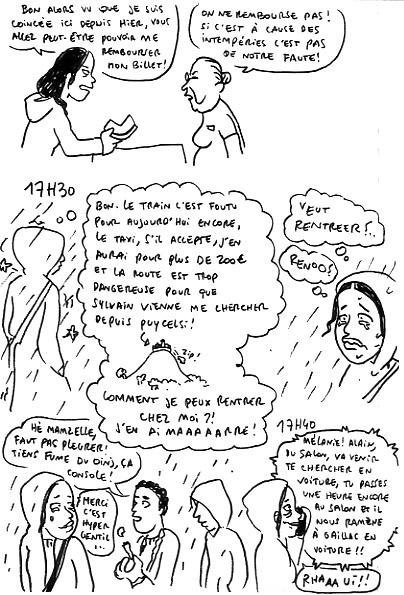 BON ALORS VU QUE JE SUIS
COINCÉE ICI DEPUIS HIER, VOUS
ALLEZ PEUT-ÊTRE POUVOIR ME
REMBOURSER
MON BILLET!
ON NE REMBOURSE PAS!
SI C'EST À CAUSE DES
INTEMPÉRIES C'EST PAS
DE NOTRE FAUTE!
17H30
BON. LE TRAIN C'EST FOUTU
POUR AUJOURD'HUI ENCORE,
LE TAXI, S'IL ACCEPTE, J'EN
AURAI POUR PLUS DE 200€
ET LA ROUTE EST TROP
DANGEREUSE POUR QUE
SYLVAIN VIENNE ME CHERCHER
DEPUIS PUYCELSI!
COMMENT JE PEUX RENTRER
CHEZ MOI?!
J'EN AI MAAAAARRE!
VEUT
RENTREER!..
RENDO!
HÉ MAMZELLE,
FAUT PAS PLEURER!
TIENS FUME DU OINJ, ÇA
CONSOLE!
MERCI
C'EST
HYPER
GENTIL...
17H40
MÉLANIE! ALAIN,
DU SALON, VA VENIR
TE CHERCHER EN
VOITURE, TU PASSES
UNE HEURE ENCORE
AU SALON ET IL
NOUS RAMÈNE
À GAILLAC EN
VOITURE!!
RHAAA UI!!